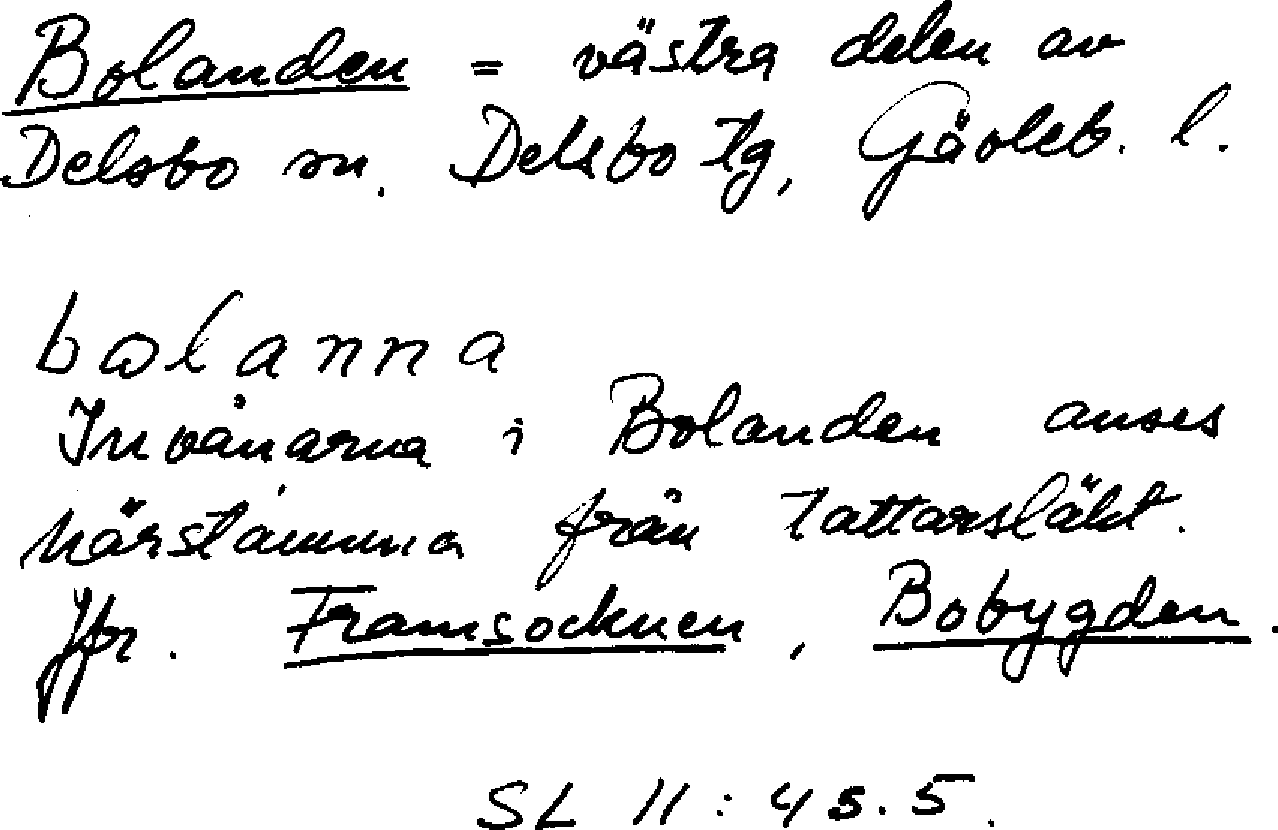 Bolanden = västra delen av
Delsbo sn. Delsbo tg, Gävleb. l.
bolanna
Invånarna i Bolanden anses
härstamma från tattarsläkt.
Jfr. Framsocknen, Bobygden.
SL 11:45.5.